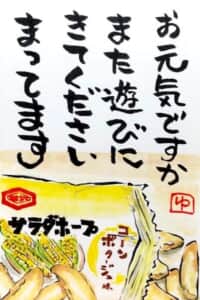 お元気ですか
また遊びに
きてください
まってます
ゆ
サラダホープ
コーン
ポタージュ
味